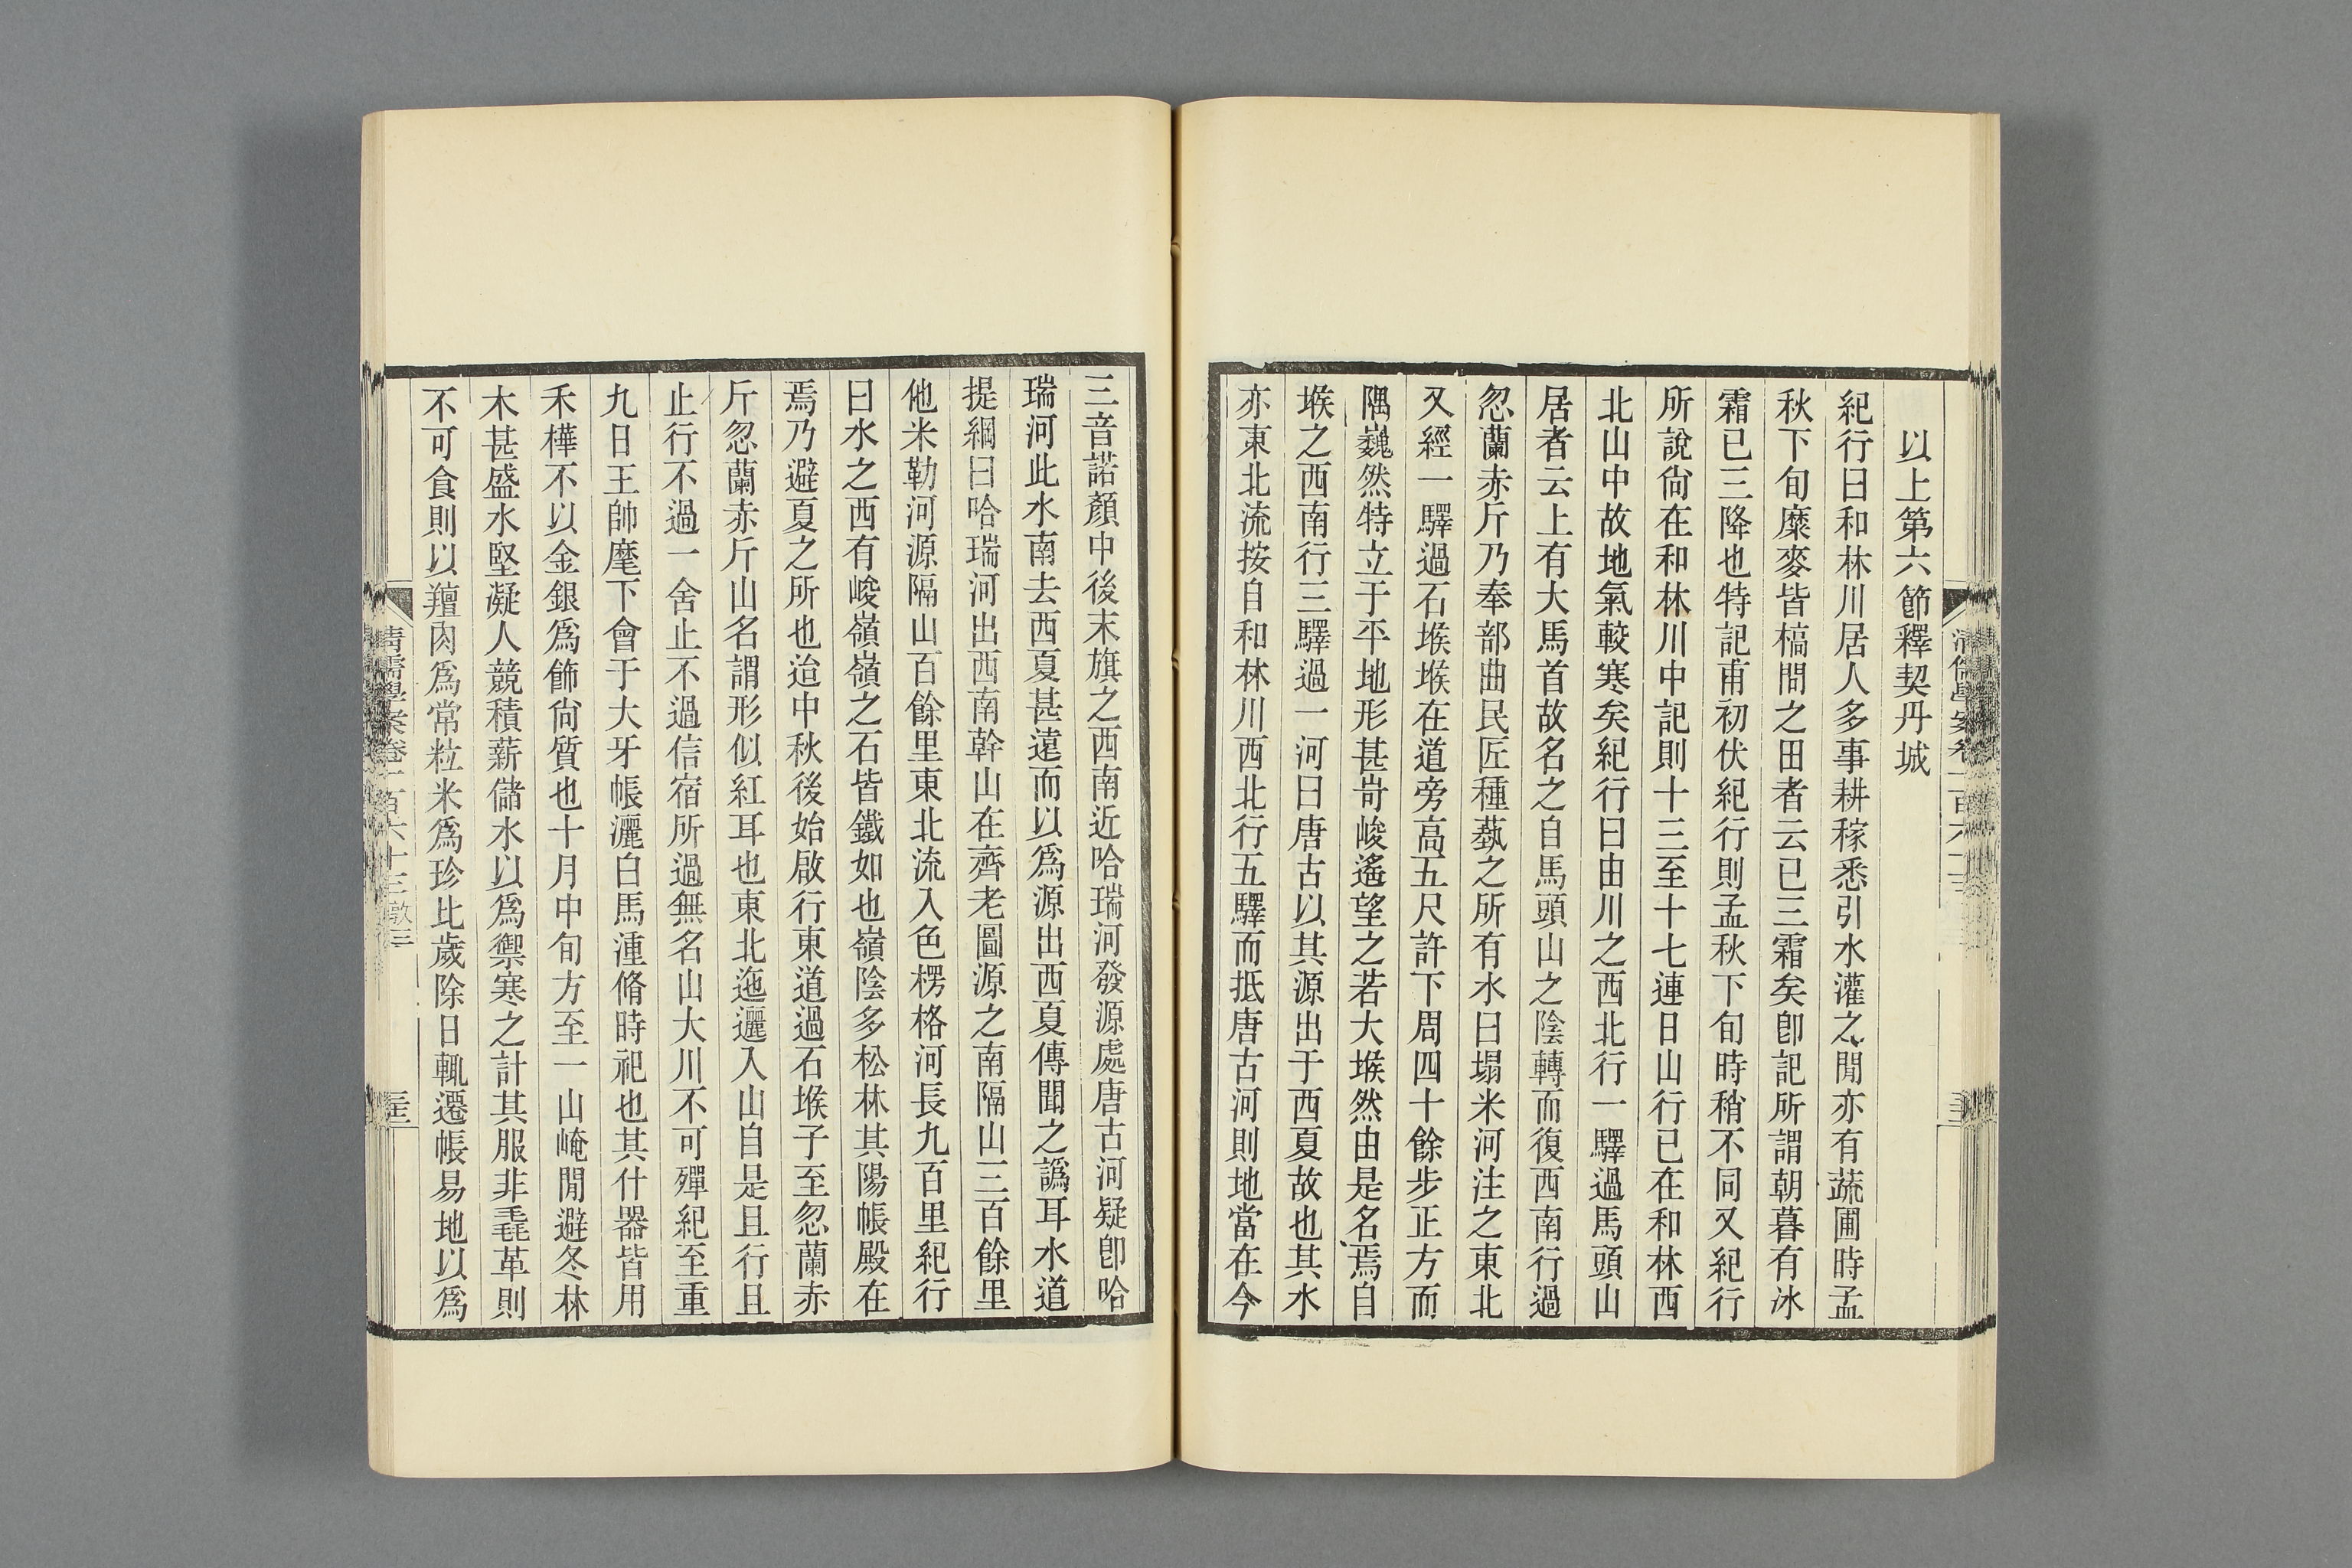 以上第六節釋契丹城
紀行曰和林川居人多事耕稼悉引水灌之閒亦有蔬圃時孟
秋下旬糜麥皆槁問之田者云已三霜矣卽記所謂朝暮有冰
霜已三降也特記甫初伏紀行則孟秋下旬時稍不同又紀行
所說尙在和林川中記則十三至十七連日山行已在和林西
北山中故地氣較寒矣紀行曰由川之西北行一驛過馬頭山
居者云上有大馬首故名之自馬頭山之陰轉而復西南行過
忽蘭赤斤乃奉部曲民匠種藝之所有水曰塌米河注之東北
又經一驛過石堠堠在道旁高五尺許下周四十餘步正方而
隅巍然特立于平地形甚奇峻遙望之若大堠然由是名焉自
堠之西南行三驛過一河曰唐古以其源出于西夏故也其水
亦東北流按自和林川西北行五驛而抵唐古河則地當在今
三音諾顏中後末旗之西南近哈瑞河發源處唐古河疑卽哈
瑞河此水南去西夏甚遠而以爲源出西夏傳聞之譌耳水道
提綱曰哈瑞河出西南幹山在齊老圖源之南隔山三百餘里
他米勒河源隔山百餘里東北流入色楞格河長九百里紀行
曰水之西有峻嶺嶺之石皆鐵如也嶺陰多松林其陽帳殿在
焉乃避夏之所也迨中秋後始啟行東道過石堠子至忽蘭赤
斤忽蘭赤斤山名謂形似紅耳也東北迤邐入山自是且行且
止行不過一舍止不過信宿所過無名山大川不可殫紀至重
九日王帥麾下會于大牙帳灑白馬湩脩時祀也其什器皆用
禾樺不以金銀爲飾尙質也十月中旬方至一山崦閒避冬林
木甚盛水堅凝人競積薪儲水以爲禦寒之計其服非毳革則
不可食則以羶肉爲常粒米爲珍比歲除日輒遷帳易地以爲
清儒學案卷一百六十三敬三